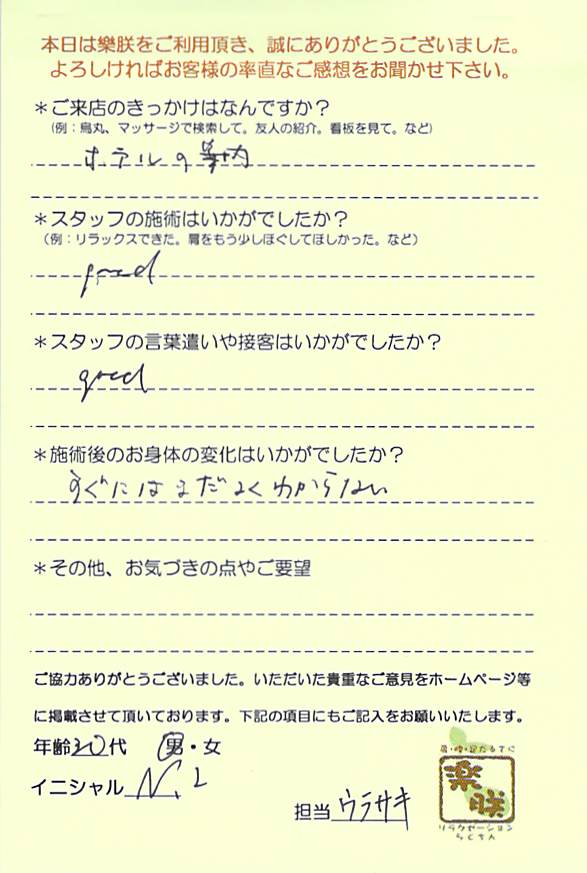 本日は樂朕をご利用頂き、誠にありがとうございました。
よろしければお客様の率直なご感想をお聞かせ下さい。
＊ご来店のきっかけはなんですか？
（例：烏丸、マッサージで検索して。友人の紹介。看板を見て。など）
ホテルの案内
＊スタッフの施術はいかがでしたか？
（例：リラックスできた。肩をもう少しほぐしてほしかった。など）
good
＊スタッフの言葉遣いや接客はいかがでしたか？
good
＊施術後のお身体の変化はいかがでしたか？
すぐにはまだよくわからない
＊その他、お気づきの点やご要望
ご協力ありがとうございました。いただいた貴重なご意見をホームページ等
に掲載させて頂いております。下記の項目にもご記入をお願いいたします。
年齢30代 男・女
イニシャル N.L
担当 ウラサキ
肩・腰・足だるすぐに
楽朕
リラクゼーション
らくちん